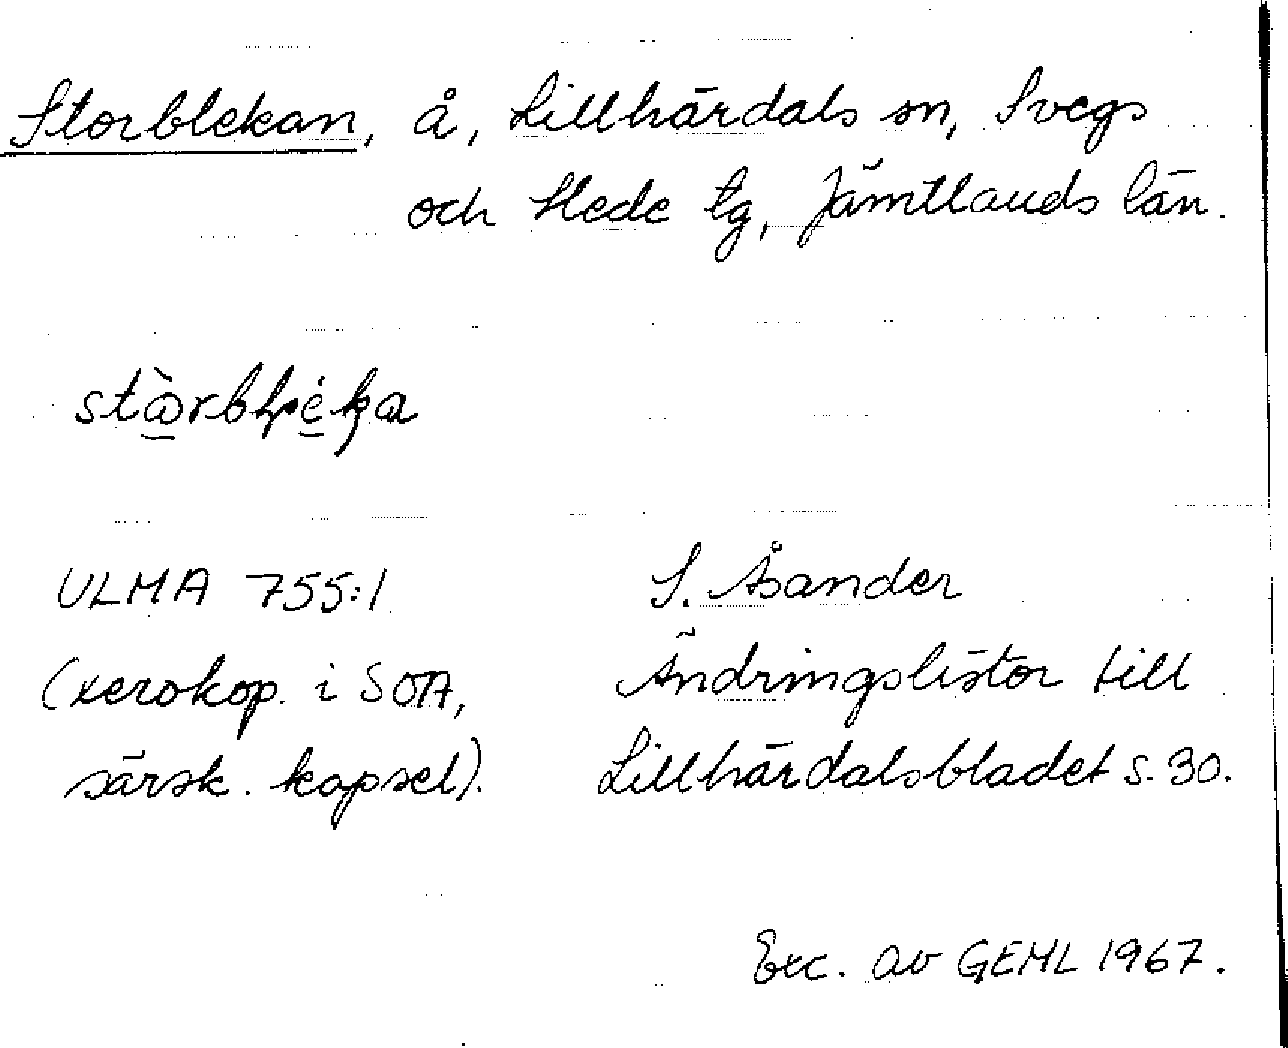 Storblekan, å, Lillhärdals sn, Svegs
och Hede tg, Jämtlands län.
ULMA 755:1 S. Åsander
(xerokop. i SOA, Ändringslistor till
särsk. kapsel). Lillhärdalsbladet s. 30.
Exc. av GEML 1967.